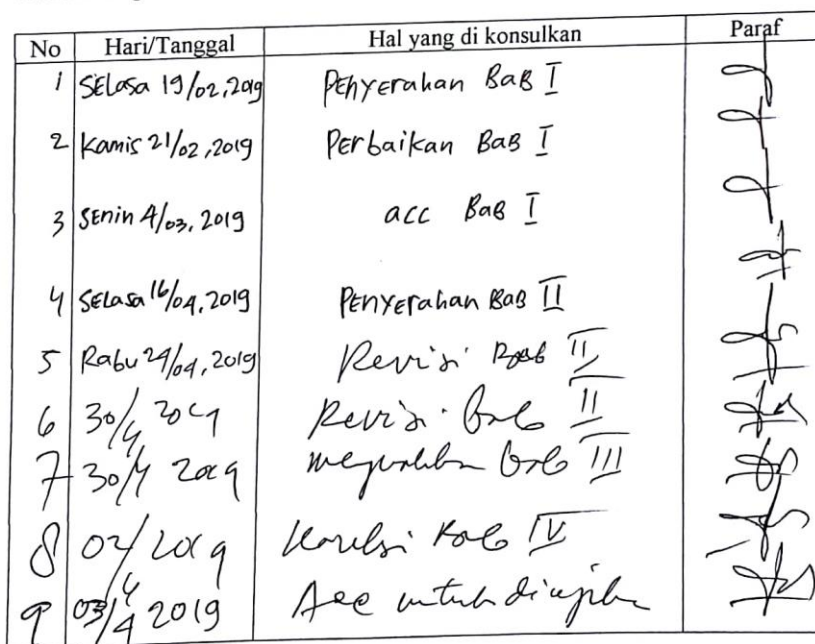 No Hari/Tanggal Hal yang di konsulkan Paraf
1 Selasa 19/02, 2019 Penyerahan Bab I
2 Kamis 21/02, 2019 Perbaikan Bab I
3 Senin 4/03, 2019 acc Bab I
4 Selasa 16/04, 2019 Penyerahan Bab II
5 Rabu 24/04, 2019 Revisi Bab II
6 30/4 2019 Revisi Bab II
7 30/4 2019 Bab III
8 02/ 2019 Koreksi Bab IV
9 03/4 2019 Acc untuk diujikan